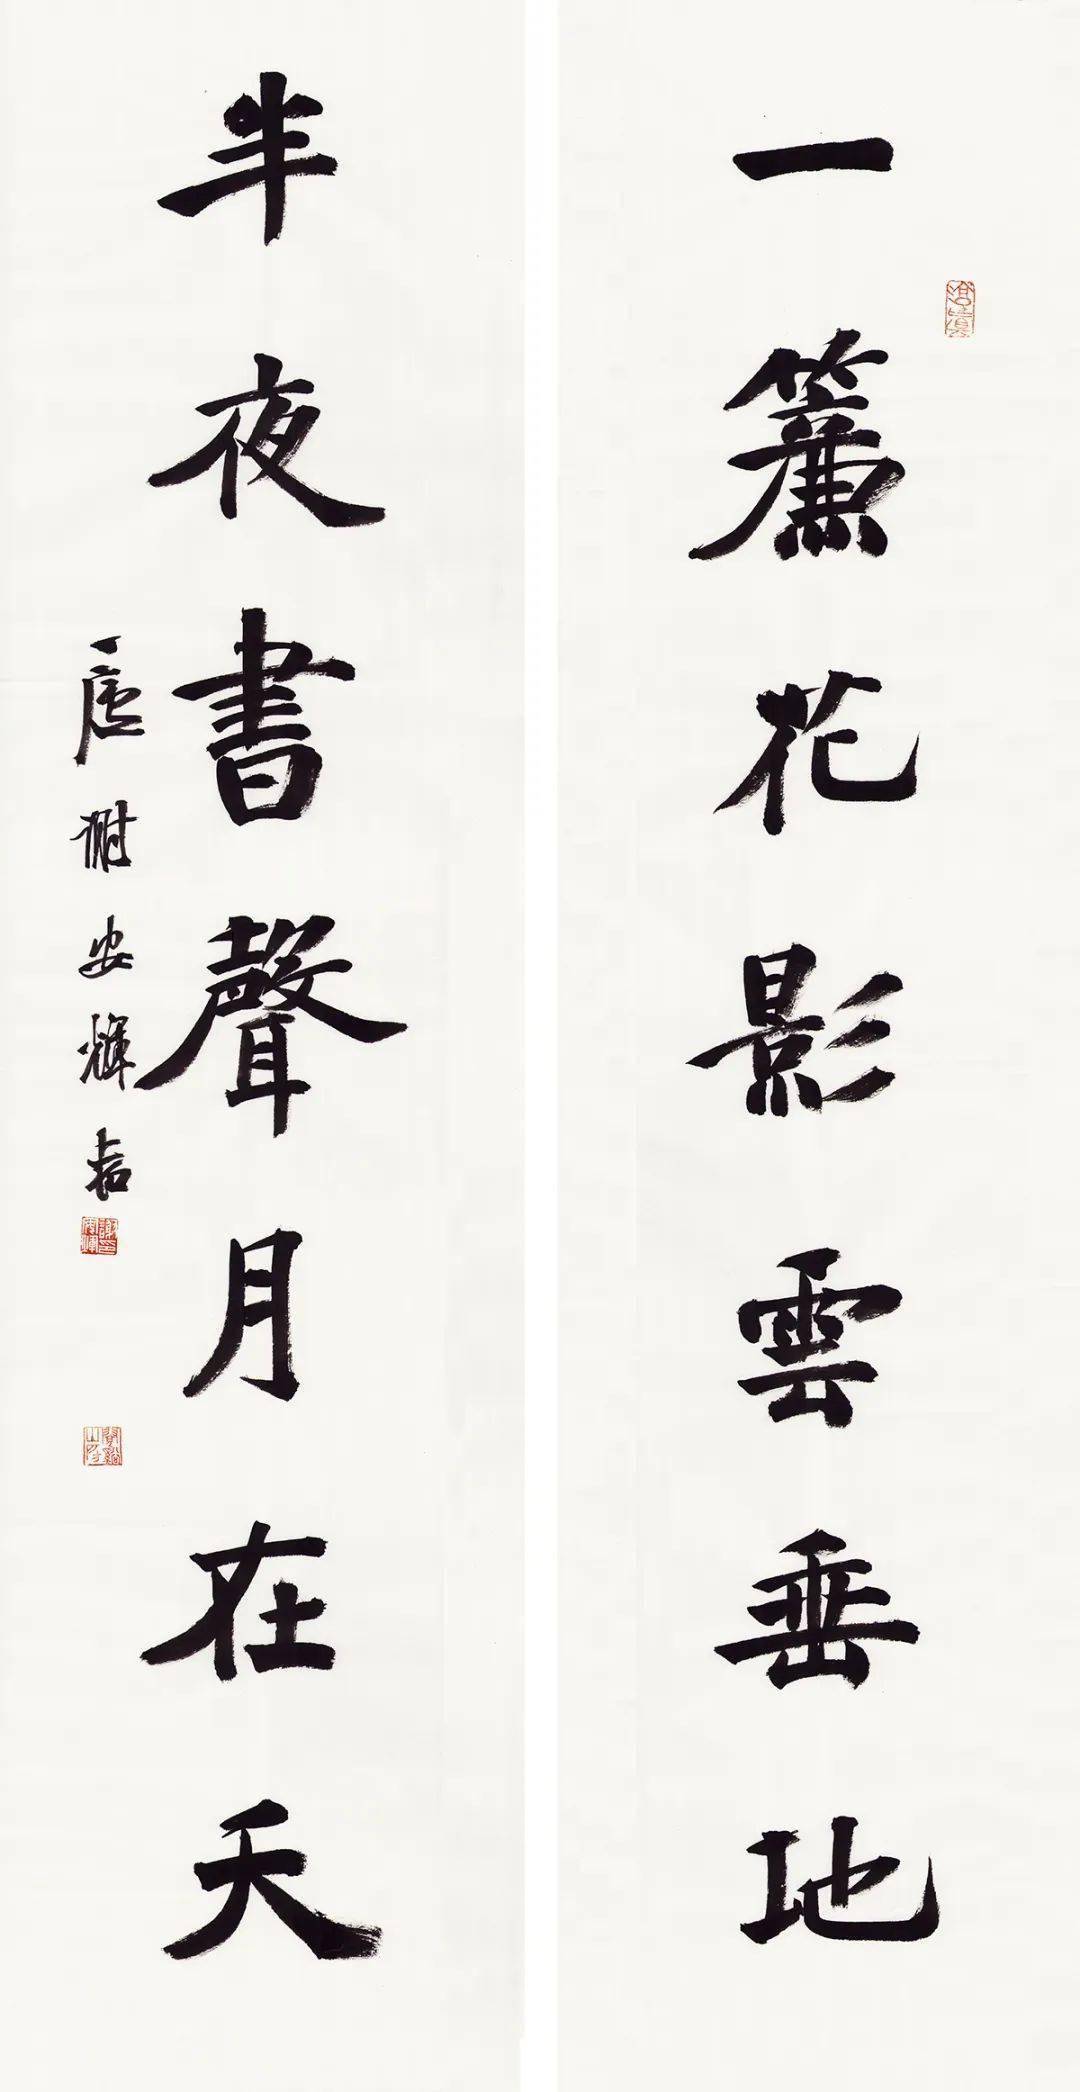 一簾花影雲垂地
半夜書聲月在天
謝安輝書